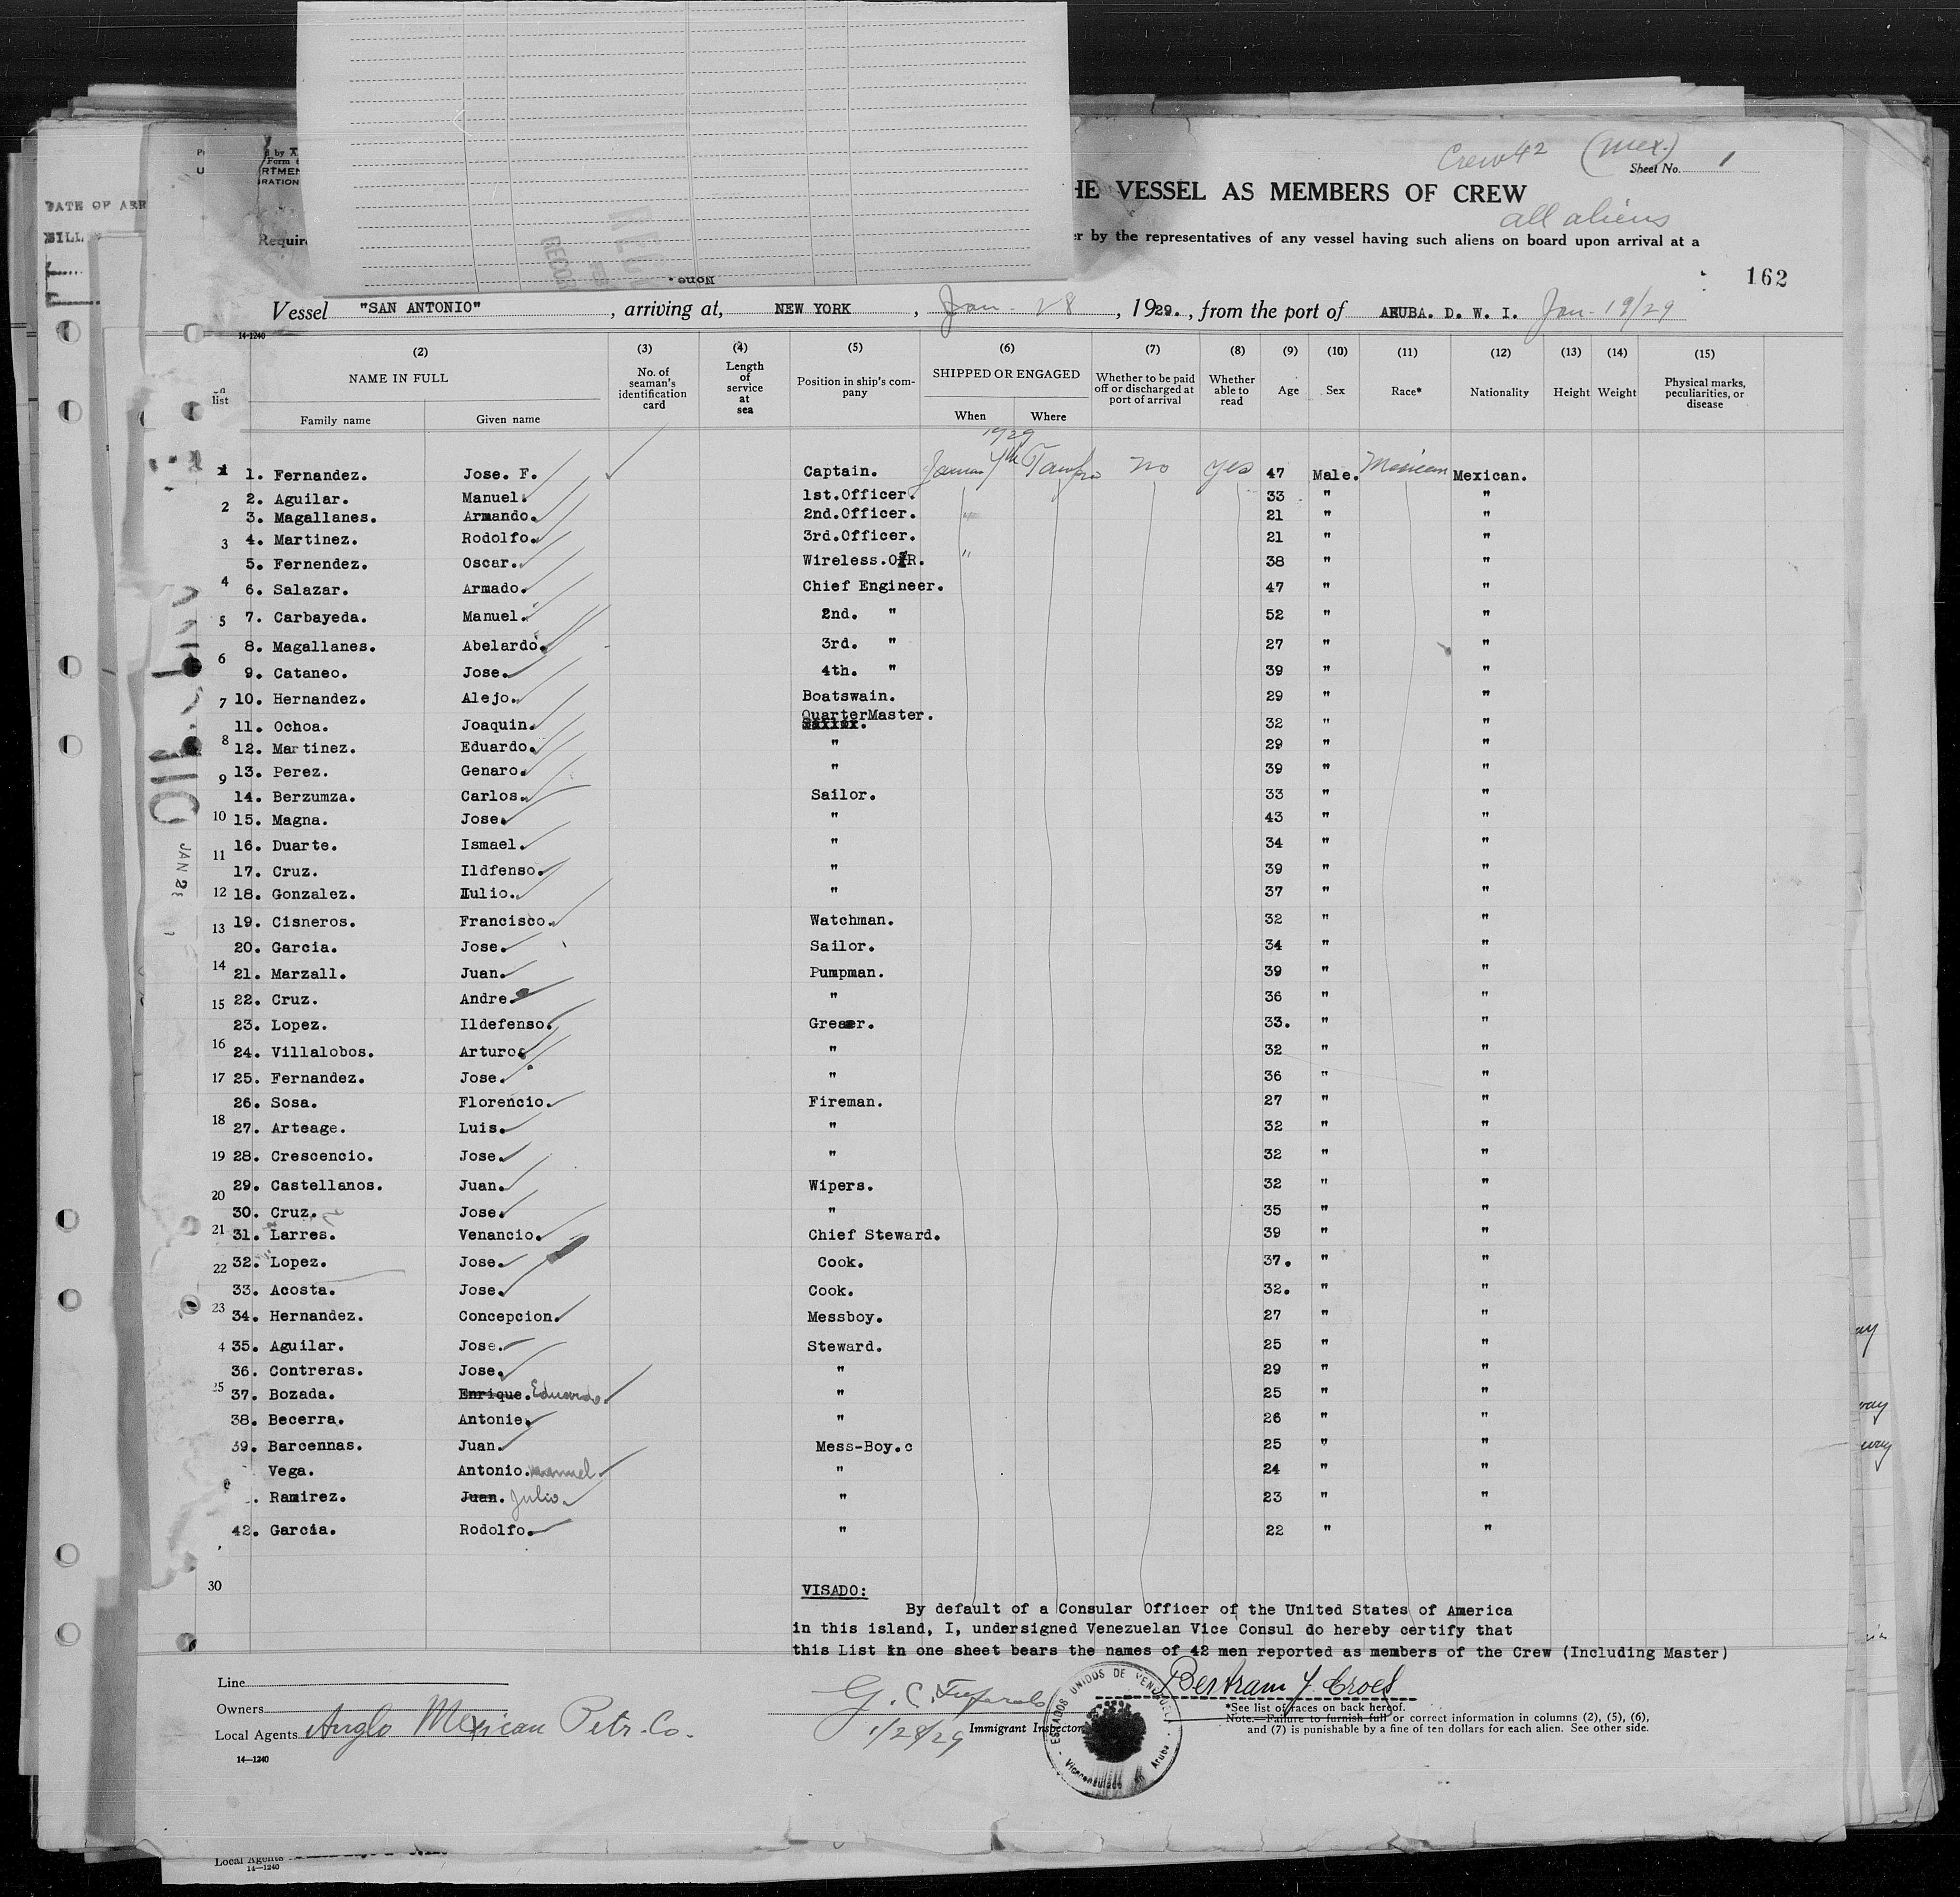 Crew 42 (Mex.)
Sheet No. 1
HE VESSEL AS MEMBERS OF CREW
all aliens
Requir
er by the representatives of any vessel having such aliens on board upon arrival at a
None.
162
DATE OF ARR
Vessel "SAN ANTONIO", arriving at, NEW YORK, Jan. 28, 1929., from the port of ARUBA. D. W. I. Jan-19/29
14-1240
(2) (3) (4) (5) (6) (7) (8) (9) (10) (11) (12) (13) (14) (15)
list NAME IN FULL Family name Given name No. of seaman's identification card Length of service at sea Position in ship's company SHIPPED OR ENGAGED When Where Whether to be paid off or discharged at port of arrival Whether able to read Age Sex Race* Nationality Height Weight Physical marks, peculiarities, or disease
1929
1 1. Fernandez. Jose. F. Captain. 7th no yes 47 Male. Mexican Mexican.
2 2. Aguilar. Manuel. 1st.Officer. 33 " "
3. Magallanes. Armando. 2nd.Officer. 21 " "
3 4. Martinez. Rodolfo. 3rd.Officer. 21 " "
5. Fernendez. Oscar. Wireless. " 38 " "
4 6. Salazar. Armado. Chief Engineer. 47 " "
5 7. Carbayeda. Manuel. 2nd. " 52 " "
8. Magallanes. Abelardo. 3rd. " 27 " "
6 9. Cataneo. Jose. 4th. " 39 " "
7 10. Hernandez. Alejo. Boatswain. 29 " "
11. Ochoa. Joaquin. QuarterMaster. 32 " "
8 12. Martinez. Eduardo. " 29 " "
9 13. Perez. Genaro. " 39 " "
14. Berzumza. Carlos. Sailor. 33 " "
10 15. Magna. Jose. " 43 " "
11 16. Duarte. Ismael. " 34 " "
17. Cruz. Ildfenso. " 39 " "
12 18. Gonzalez. " 37 " "
13 19. Cisneros. Francisco. Watchman. 32 " "
20. Garcia. Jose. Sailor. 34 " "
14 21. Marzall. Juan. Pumpman. 39 " "
15 22. Cruz. Andre. " 36 " "
23. Lopez. Ildefenso. Greaer. 33. " "
16 24. Villalobos. Arturo. " 32 " "
17 25. Fernandez. Jose. " 36 " "
26. Sosa. Florencio. Fireman. 27 " "
18 27. Arteage. Luis. " 32 " "
19 28. Crescencio. Jose. " 32 " "
20 29. Castellanos. Juan. Wipers. 32 " "
30. Cruz. Jose. " 35 " "
21 31. Larres. Venancio. Chief Steward. 39 " "
22 32. Lopez. Jose. Cook. 37. " "
33. Acosta. Jose. Cook. 32. " "
23 34. Hernandez. Concepcion. Messboy. 27 " "
4 35. Aguilar. Jose. Steward. 25 " "
36. Contreras. Jose. " 29 " "
25 37. Bozada. Enrique. Eduardo. " 25 " "
38. Becerra. Antonie. " 26 " "
39. Barcennas. Juan. Mess-Boy.c 25 " "
Vega. Antonio. Manuel " 24 " "
. Ramirez. Juan. Julio. " 23 " "
42. Garcia. Rodolfo. " 22 " "
30
VISADO:
By default of a Consular Officer of the United States of America
in this island, I, undersigned Venezuelan Vice Consul do hereby certify that
this List in one sheet bears the names of 42 men reported as members of the Crew (Including Master)
Line
Owners
Local Agents Anglo Mexican Petr. Co.
14—1240
1/28/29
Immigrant Inspector
ESTADOS UNIDOS DE VENEZUELA
Viceconsulado en Aruba
Bertram Y Croes
*See list of races on back hereof.
Note.—Failure to furnish full or correct information in columns (2), (5), (6),
and (7) is punishable by a fine of ten dollars for each alien. See other side.
JAN 28
Local Agents
14—1240